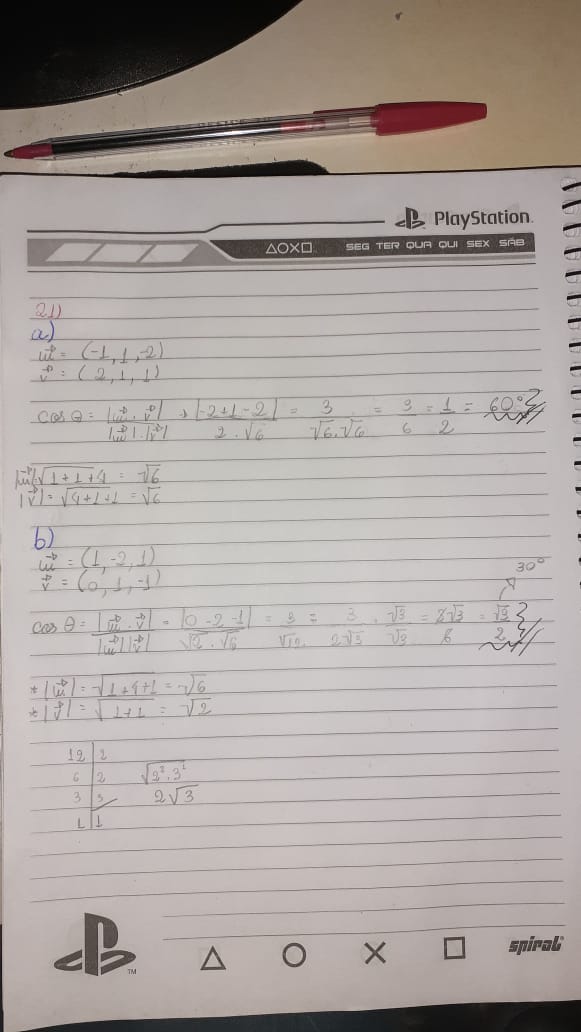 PlayStation
△○✕□ SEG TER QUA QUI SEX SÁB
21)
a)
u⃗ = (-1, 1, -2)
v⃗ = (2, 1, 1)
cos θ = |u⃗ . v⃗| / |u⃗| . |v⃗| → |-2+1-2| / 2 . √6 = 3 / √6 . √6 = 3/6 = 1/2 = 60°
|u⃗| = √1+1+4 = √6
|v⃗| = √4+1+1 = √6
b)
u⃗ = (1, -2, 1)
v⃗ = (0, 1, -1)
30°
cos θ = |u⃗ . v⃗| / |u⃗| |v⃗| = |0 - 2 - 1| / √2 . √6 = 3 / √12 = 3 / 2√3 . √3 / √3 = 3√3 / 6 = √3 / 2
* |u⃗| = √1+4+1 = √6
* |v⃗| = √1+1 = √2
12 | 2
6 | 2 √2² . 3¹
3 | 3 2√3
1 | 1
TM △ ○ ✕ □ spiral